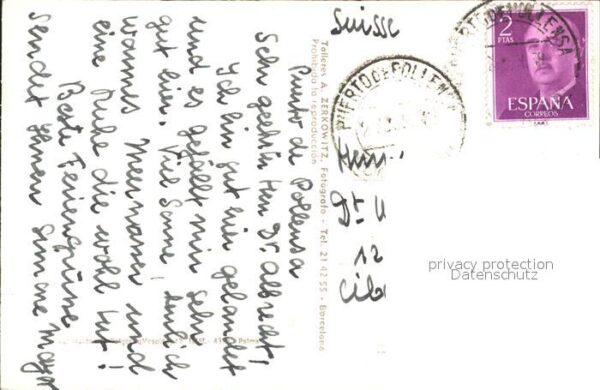 Puerto de Pollensa
Sehr geehrter Herr Dr. Albrecht!
Ich bin gut hier gelandet
und es gefällt mir sehr
gut hier. Viel Sonne, endlich
warmes Meerwasser und
eine Ruhe die wohl tut!
Beste Feriengrüsse
sendet Ihnen Simone
Talleres A. ZERKOWITZ, Fotógrafo - Tel. 21 42 55 - Barcelona
Prohibida la reproducción
Suisse
PUERTO DE POLLENSA
PUERTO DE POLLENSA
2
PTAS
ESPAÑA
CORREOS
Herrn
Dr.
12
privacy protection
Datenschutz